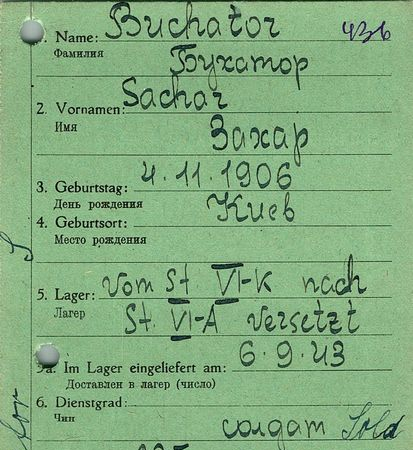 1. Name: Buchator 436
Фамилия
Бухатор
2. Vornamen: Sachar
Имя
Захар
4.11.1906
3. Geburtstag:
День рождения
Киев
4. Geburtsort:
Место рождения
5. Lager: Vom St. VI-K nach
Лагер
St. VI-A versetzt
6.9.43
5a. Im Lager eingeliefert am:
Доставлен в лагер (число)
6. Dienstgrad:
Чин
солдат Sold